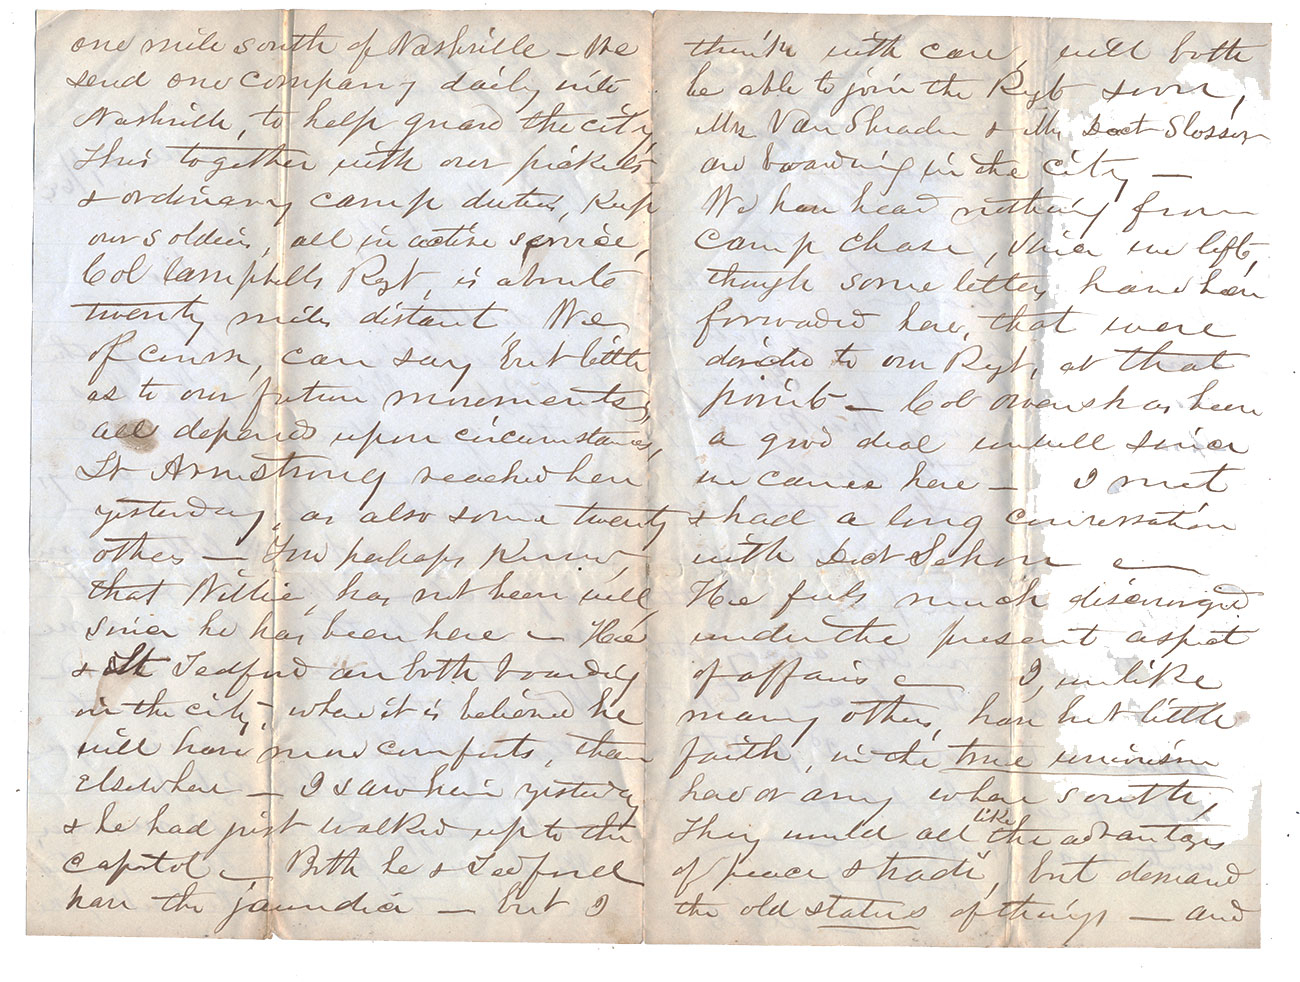 one mile south of Nashville – We
send one company daily into
Nashville, to help guard the city,
This together with our pickets
& ordinary camp duties, keep
our soldiers, all in active service,
Col Campbells Regt, is about
twenty miles distant, We,
of course, can say but little
as to our future movements,
all depends upon circumstances,
Lt Armstrong reached here
yesterday, as also some twenty
others – You perhaps know,
that Willie, has not been well,
since he has been here – He
& Lt Tedford are both boarding
in the city, where it is believed he
will have more comforts, than
elsewhere – I saw him yesterday
& he had just walked up to the
Capitol – Both he & Tedford
have the jaundice – but I
think with care, will both
be able to join the Regt soon,
Mr Van Shrader & Mr Doct Slosson
are boarding in the city –
We have heard nothing from
Camp Chase, since we left,
though some letters have been
forwarded here, that were
directed to our Regt, at that
point – Col Owens has been
a good deal unwell since
we came here – I met
& had a long conversation
with Doct Sehon –
He feels much discouraged
under the present aspect
of affairs – I, unlike
many others, have but little
faith, in the true unionism
here or any where south,
They would all like the advantages
of peace & trade, but demand
the old status of things – and